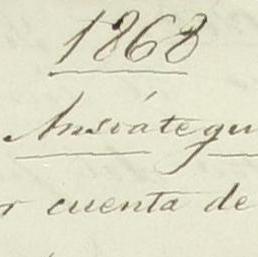 1868
Ansoátegu
r cuenta de